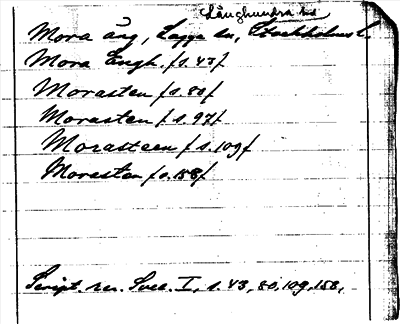 Långhundra hd
Mora äng, Lagga sn, Stockholms l.
Mora Engh. /s. 43/
Morasten /s. 80/
Morasten /s. 97/
Morasteen /s. 109/
Morasten /s. 158/
Script. rer. Svec. I, s. 43, 80, 109, 158,